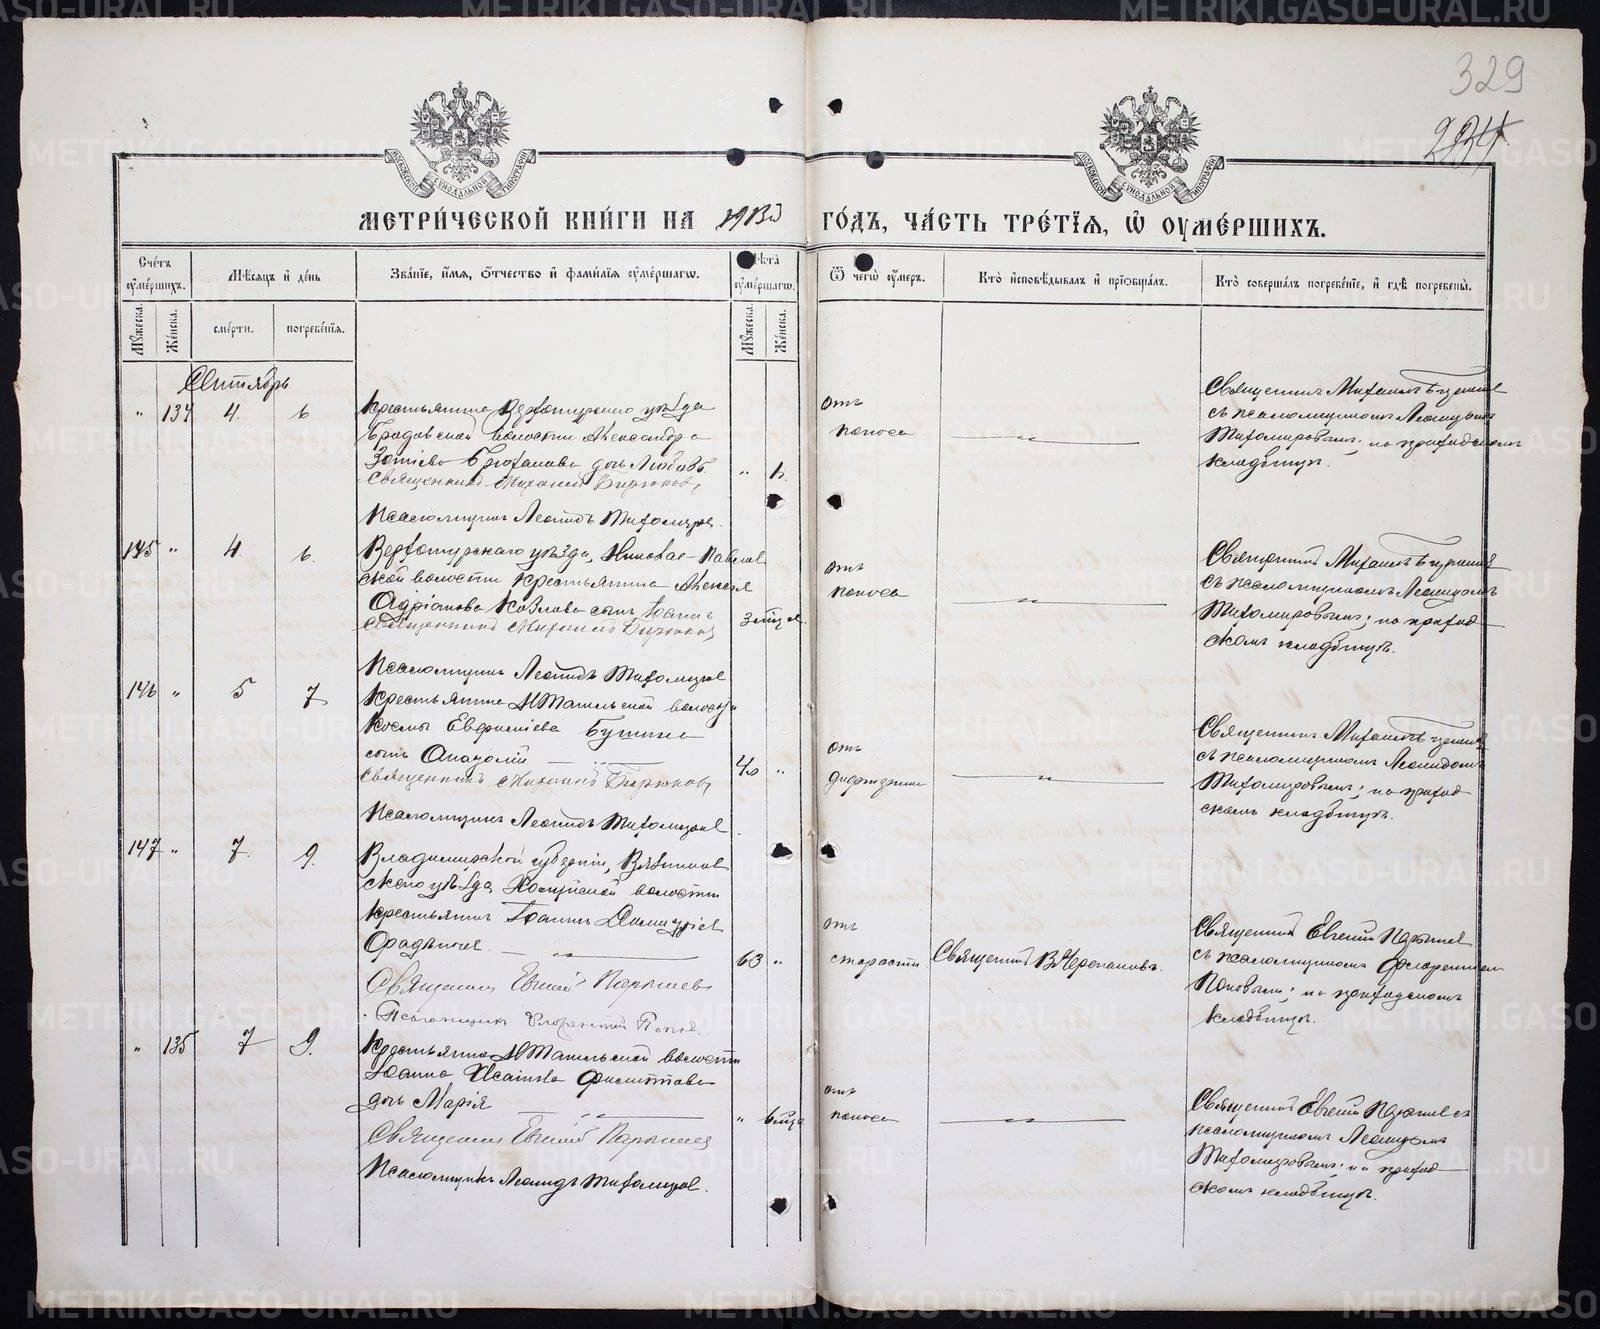 329
234
МЕТРИ́ЧЕСКОЙ КНИ́ГИ НА 1913й ГО́ДЪ, ЧА́СТЬ ТРЕ́ТІЯ, Ѡ҆ ОУМЕ́РШИХЪ.
Сче́тъ оуме́ршихъ.
Мѣ́сяцъ и҆ де́нь
Зва́нїе, и҆́мя, ѻ҆́тчество и҆ фами́лїя оуме́ршагѡ.
Лѣ́та оуме́ршагѡ.
Ѿ чегѡ̀ оу҆́меръ.
Кто̀ и҆сповѣ́дывалъ и҆ прїѡбща́лъ.
Кто̀ соверша́лъ погребе́нїе, и҆ гдѣ̀ погребены̀.
Му́жеска.
Же́нска.
сме́рти.
погребе́нїя.
Му́жеска.
Же́нска.
Сентябрь
" 134 4. 6
Крестьянина Верхотурскаго уѣзда
Бродовской волости Александра
Зотіева Брюханова дочь Любовь
Священникъ Михаилъ Бирюковъ
Псаломщикъ Леонидъ Тихомировъ.
отъ
поноса
Священникъ Михаилъ Бирюковъ
съ псаломщикомъ Леонидомъ
Тихомировымъ; на приходскомъ
кладбищѣ.
145 " 4. 6.
Верхотурскаго уѣзда, Николае-Павлов
ской волости крестьянина Алексѣя
Адріанова Козлова сынъ Іоаннъ
Священникъ Михаилъ Бирюковъ
3 мѣся.
Псаломщикъ Леонидъ Тихомировъ
отъ
поноса
Священникъ Михаилъ Бирюковъ
съ псаломщикомъ Леонидомъ
Тихомировымъ; на приход
скомъ кладбищѣ.
146 " 5 7
Крестьянина НТагильской волости
Космы Евфиміева Бушина
сынъ Анатолій
Священникъ Михаилъ Бирюковъ
Псаломщикъ Леонидъ Тихомировъ
отъ
дифтерита
Священникъ Михаилъ Бирюковъ
съ псаломщикомъ Леонидомъ
Тихомировымъ; на приход
скомъ кладбищѣ.
147 " 7. 9.
Владимірской губерніи, Вязников
скаго уѣзда Холуйской волости
крестьянинъ Іоаннъ Димитріев
63 "
Священникъ Евгеній Парышев
Псаломщикъ Флорентій Попов.
отъ
старости
Священникъ В Черепановъ.
Священникъ Евгеній Парышев
съ псаломщикомъ Флорентіем
Поповымъ; на приходскомъ
кладбищѣ.
" 135 7 9.
Крестьянина НТагильской волости
Іоанна Исаіева Филиттова
дочь Марія
" 6 мѣся
Священникъ Евгеній Парышев
Псаломщикъ Леонидъ Тихомиров.
отъ
поноса
Священникъ Евгеній Парышев съ
псаломщикомъ Леонидомъ
Тихомировымъ; на приход
скомъ кладбищѣ.